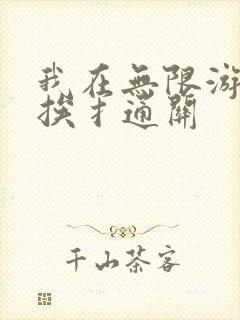 我在無限游
挨扌通關
千山茶客